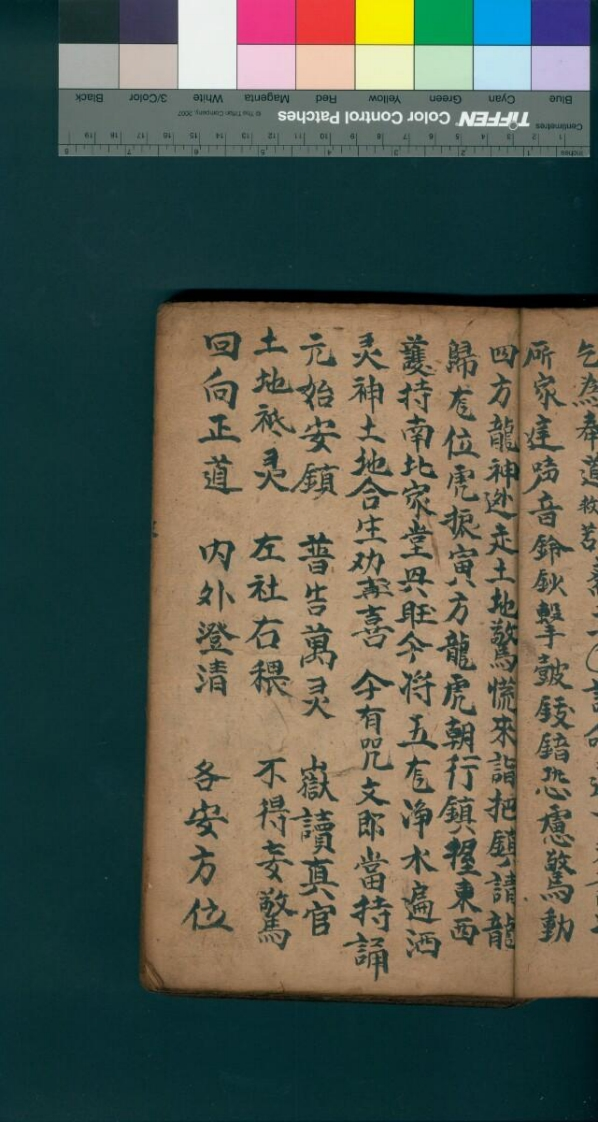 Blue Cyan Green Yellow Red Magenta White 3/Color Black
TIFFEN Color Control Patches © The Tiffen Company, 2007
Centimetres
Inches
乞為奉道
所家建

声音鈴鈸擊皷鈸鐃恐慮驚動
四方龍神迯走土地驚慌來詣把鎮請龍
歸龙位虎振寅方龍虎朝行鎮握東西
護持南北家堂興旺今將五龙淨水遍洒
灵神土地合生劝喜 今有咒文郎當持誦
元始安鎮 普告萬灵 嶽讀真官
土地祇灵 左社右稷 不得妄驚
回向正道 内外澄清 各安方位